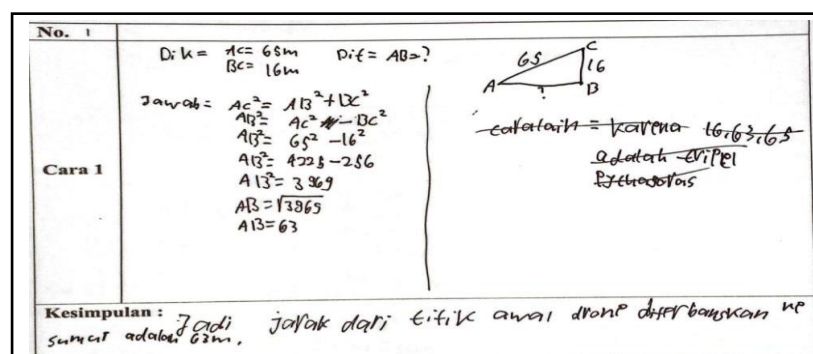 No. 1
Dik = AC = 65m Dit = AB = ?
BC = 16m
Jawab = AC² = AB² + BC²
AB² = AC² - BC²
AB² = 65² - 16²
AB² = 4225 - 256
AB² = 3969
AB = √3969
AB = 63
65
C
16
A
?
B
cara lain = karena 16, 63, 65
adalah tripel
Pythagoras
Cara 1
Kesimpulan : Jadi jarak dari titik awal drone diterbangkan ke
sumur adalah 63m.